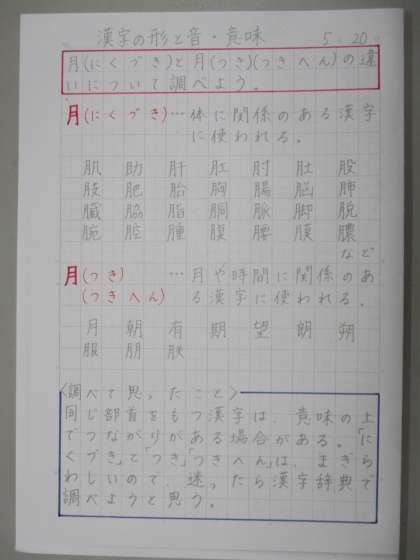 漢字の形と音・意味 5 20
月(にくづき)と月(つき)(つきへん)の違
いについて調べよう。
月(にくづき)…体に関係のある漢字
に使われる。
肌 助 肝 肛 肘 肚 股
肢 肥 胎 胸 腸 脳 肺
臓 脇 脂 胴 脈 脚 脱
腕 腔 腫 腹 腰 膜 膿
など
月(つき) …月や時間に関係のあ
(つきへん) る漢字に使われる。
月 朝 有 期 望 朗 朔
服 朋 朕
〈調べて思ったこと〉
同じ部首をもつ漢字は、意味の上
でつながりがある場合がある。「に
くづき」と「つき」「つきへん」は、まぎら
わしいので、迷ったら漢字辞典で
調べようと思う。